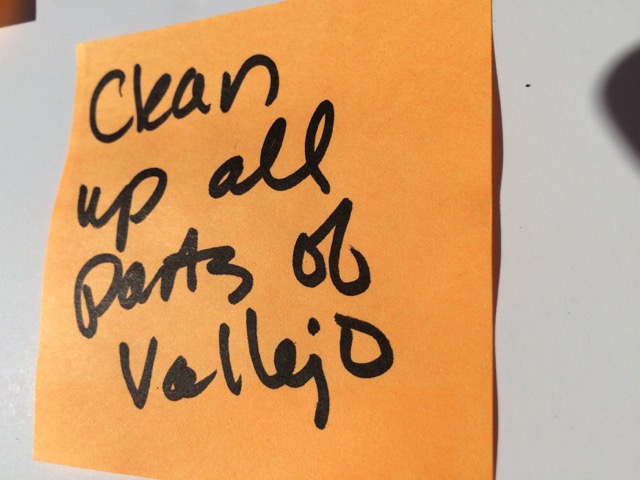 Clean
up all
parts of
Vallejo